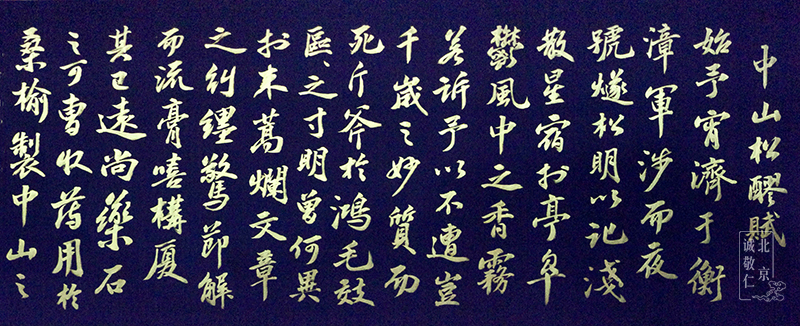 中山松醪賦
始予宵濟于衡
漳軍涉而夜
號燧松明以記淺
散星宿於亭皋
鬱風中之香霧
若訴予以不遭豈
千歲之妙質而
死斤斧於鴻毛效
區之寸明曾何異
於束蒿爛文章
之糾纏驚節解
而流膏嘻構厦
其已遠尚藥石
之可曹收薄用於
桑榆製中山之
北京
诚敬仁